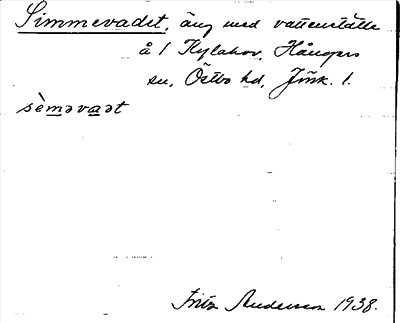 Simmevadet, äng med vattenställe
å 1 Kylahov, Hångers
sn, Östbo hd, Jönk. l.
sèmavadt
Fritz Anderson 1938.